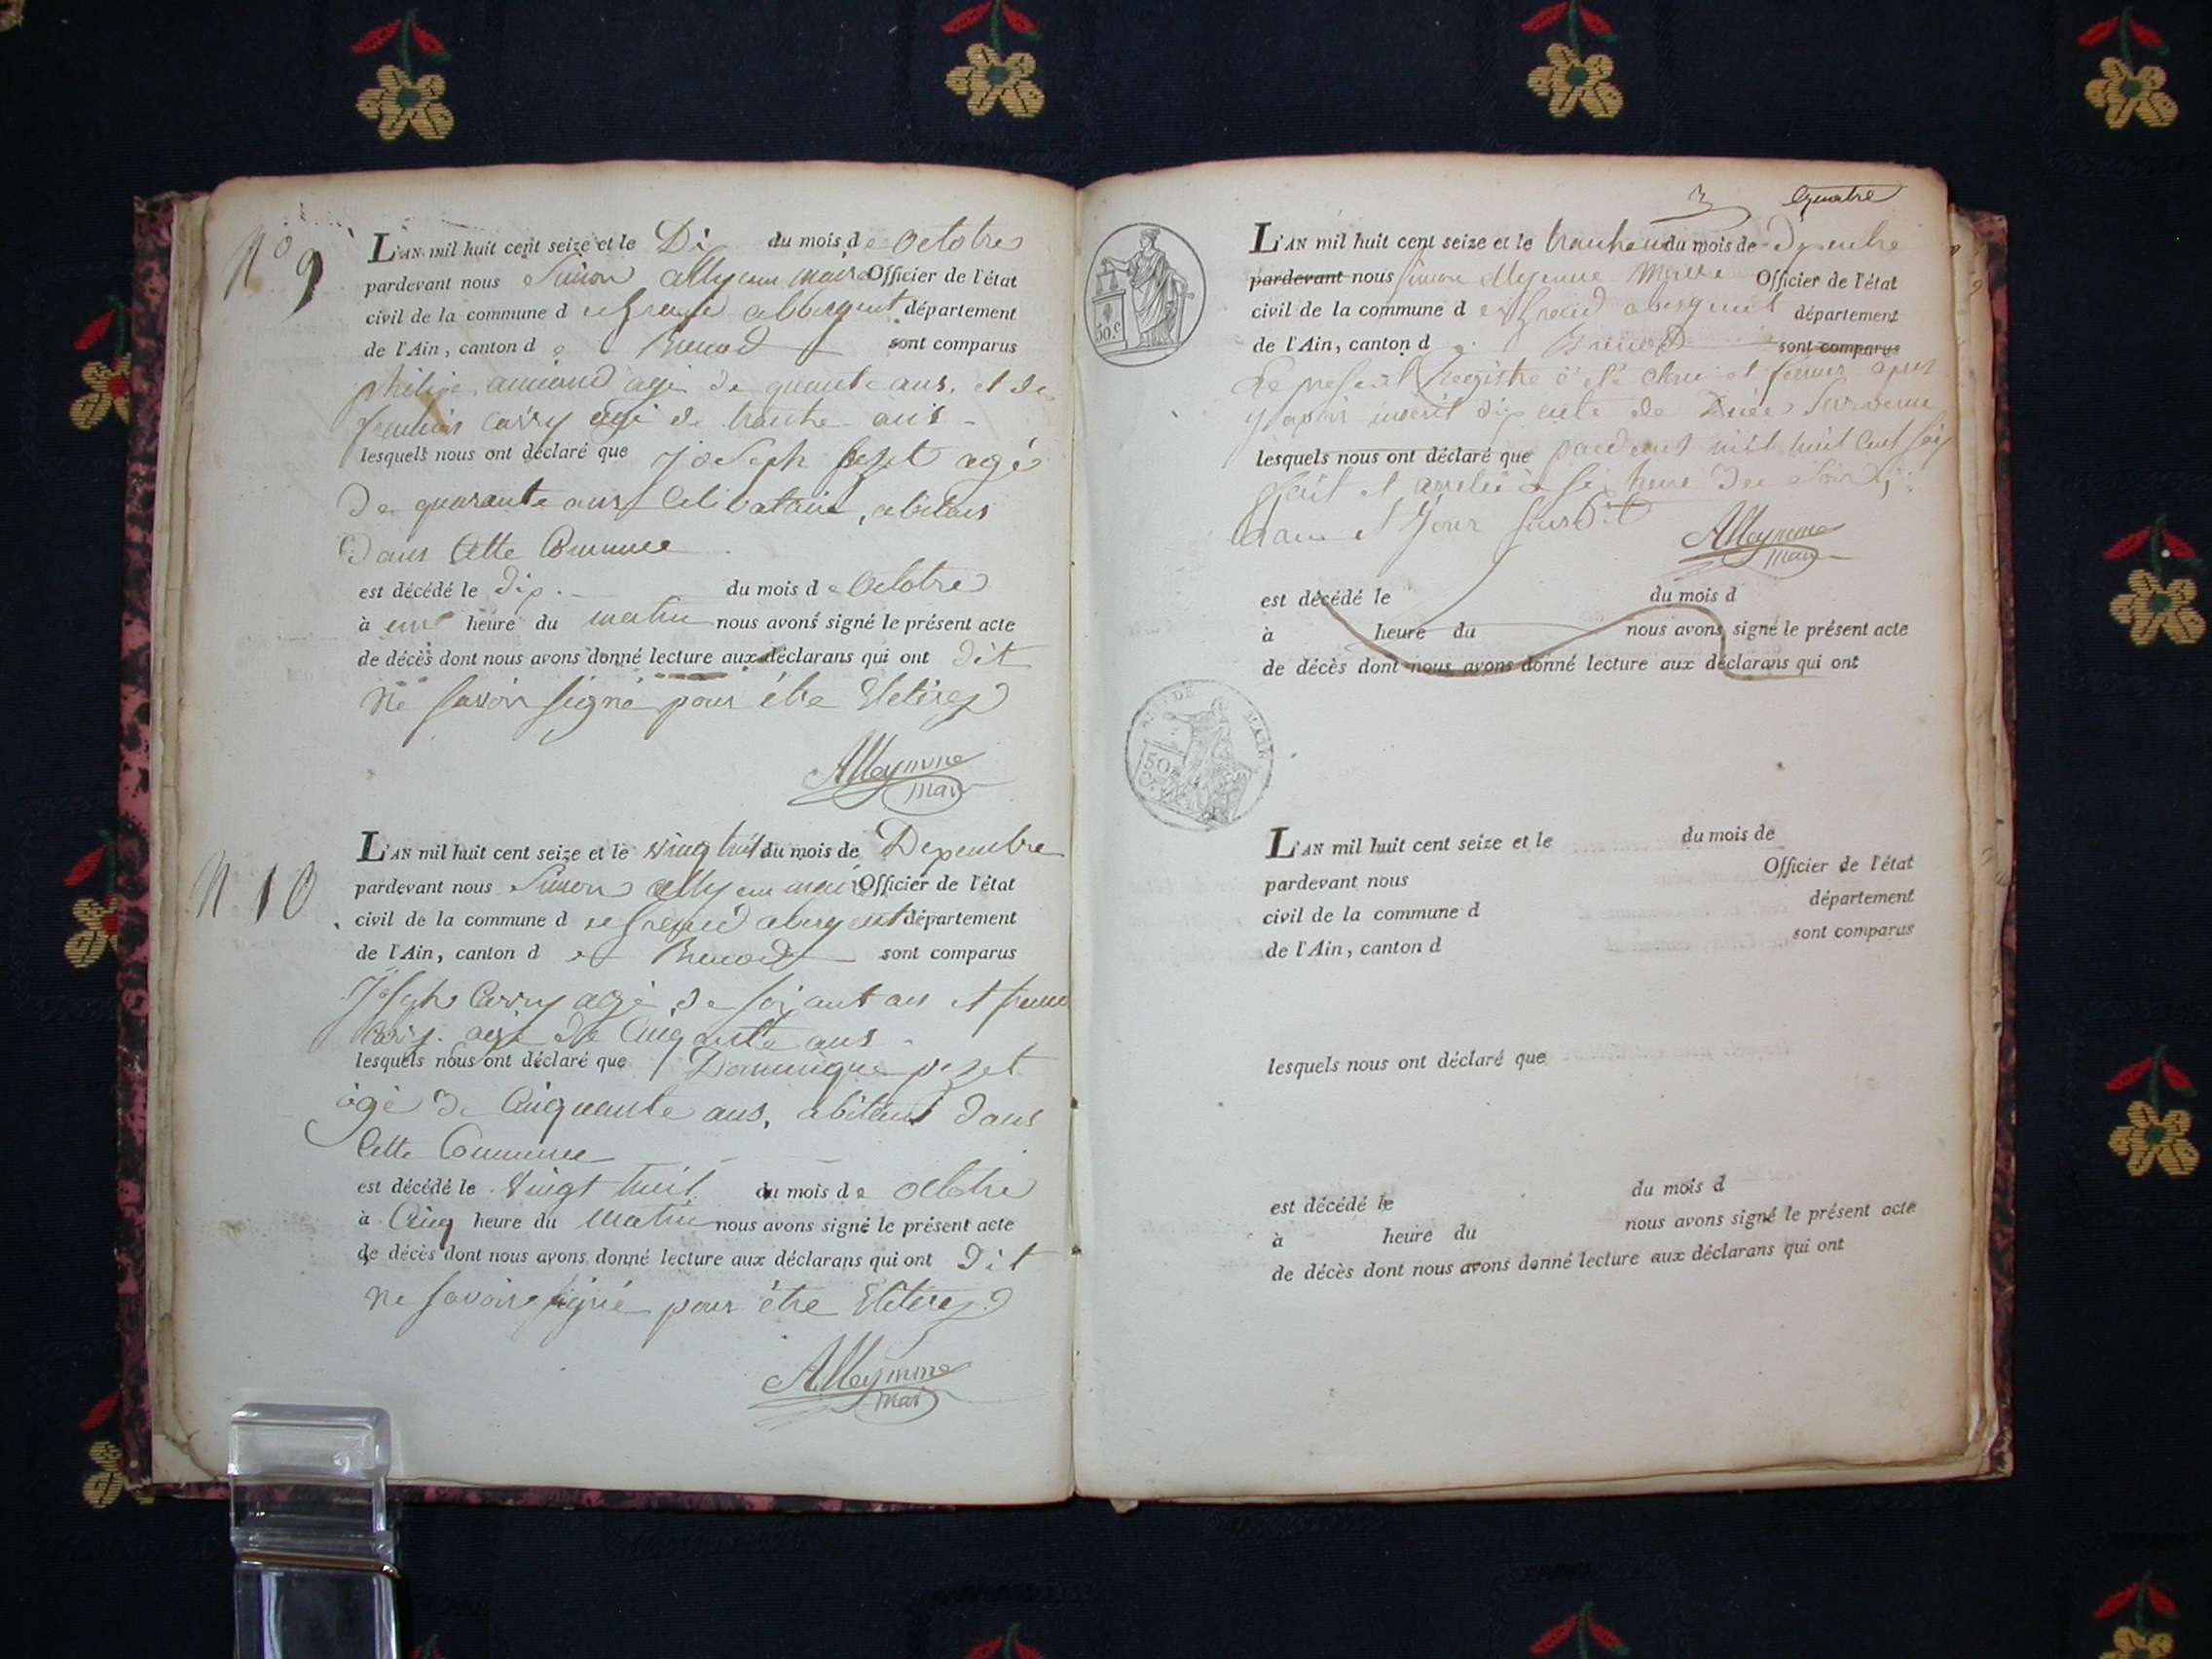 N° 9
L'AN mil huit cent seize et le Di du mois de octobre
pardevant nous Simon alleymme maire Officier de l'état
civil de la commune d abbergent département
de l'Ain, canton de Brenod sont comparus
philipe agé de quarante ans, et de
carry agé de trante ans
lesquels nous ont déclaré que joseph pezet agé
de quarante ans Celibataire, abitans
Dans Cette Commune
est décédé le dix du mois de octobre
à une heure du matin nous avons signé le présent acte
de décès dont nous avons donné lecture aux déclarans qui ont dit
ne savoir signé pour être
Alleymme
mair
N 10
L'AN mil huit cent seize et le vingt huit du mois de
pardevant nous Simon Officier de l'état
civil de la commune d abergent département
de l'Ain, canton de Brenod sont comparus
Carry agé de soixant ans et
Carry agé de
lesquels nous ont déclaré que Dominique pezet
agé de Cinquante ans, abitant dans
Cette Commune
est décédé le Vingt huit du mois de octobre
à Cinq heure du matin nous avons signé le présent acte
de décès dont nous avons donné lecture aux déclarans qui ont dit
ne savoir signé pour être
Alleymme
mair
3 quatre
L'AN mil huit cent seize et le du mois de
pardevant nous Simon Officier de l'état
civil de la commune d abergent département
de l'Ain, canton de Brenod sont comparus
Le present registre a été clau et fermer apres
y avoir inscrit dix acte de survenu
lesquels nous ont déclaré que pandent mil huit cent
fait et arreté à heure du soir
an et jour susdit
Alleymme
mair
50 c
est décédé le du mois d
à heure du nous avons signé le présent acte
de décès dont nous avons donné lecture aux déclarans qui ont
50
L'AN mil huit cent seize et le du mois de
pardevant nous Officier de l'état
civil de la commune d département
de l'Ain, canton d sont comparus
lesquels nous ont déclaré que
est décédé le du mois d
à heure du nous avons signé le présent acte
de décès dont nous avons donné lecture aux déclarans qui ont